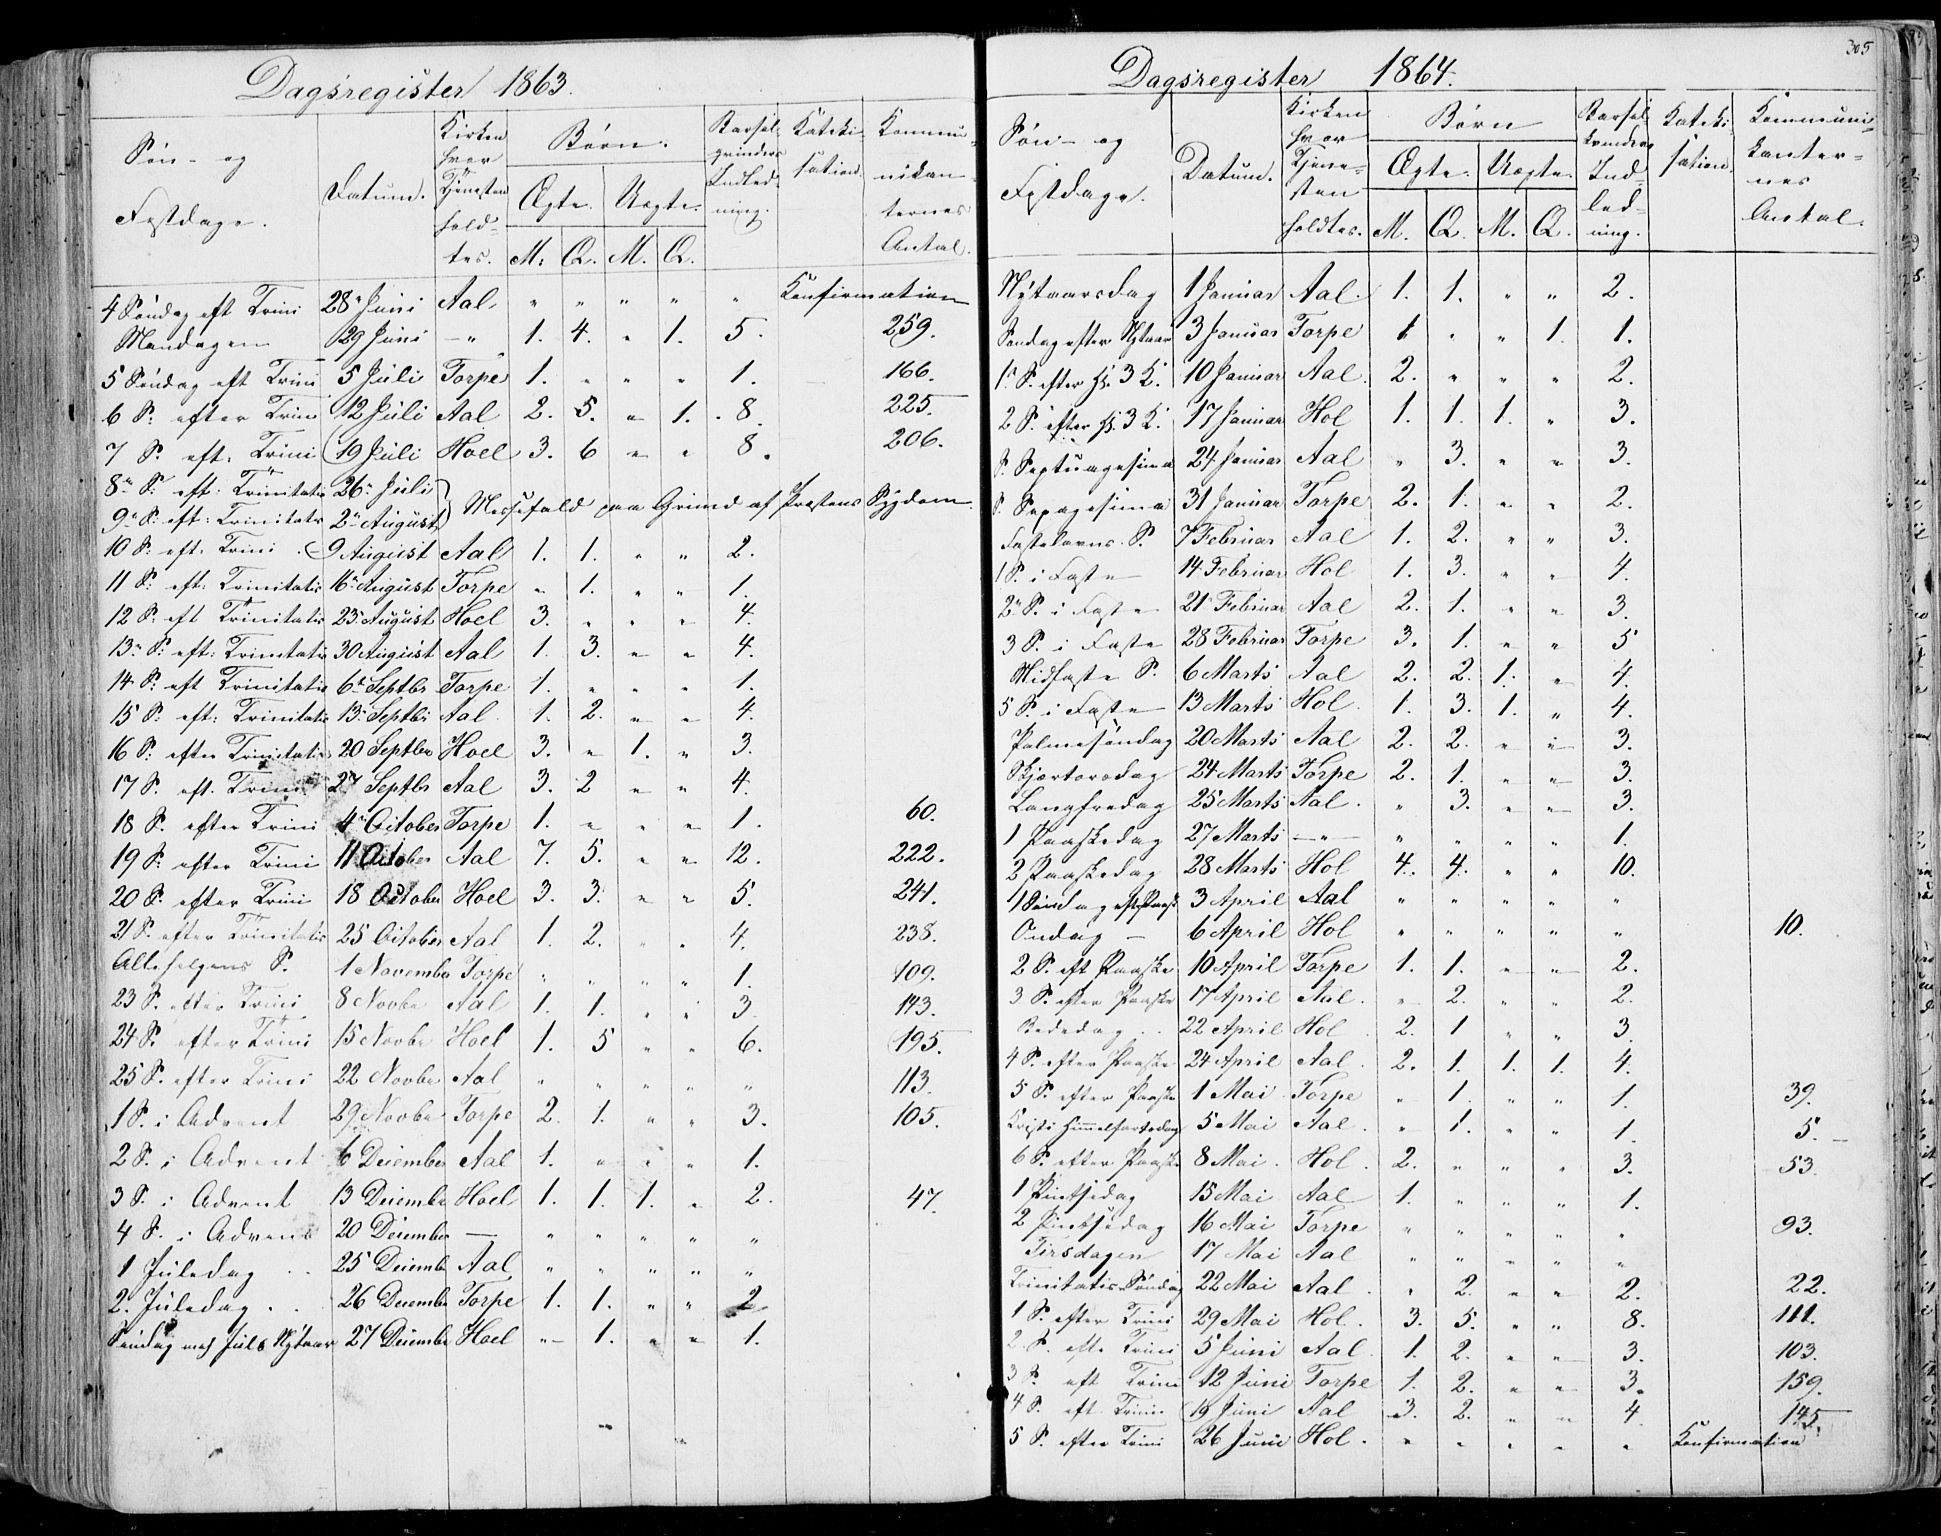 Dagsregister 1863.
Søn- og Festdage. Datum. Kirken hvor Tjenesten holdtes. Børn. Ægte. Uægte. M. Q. M. Q. Barselqvinders Indledning. Katekisation. Kommunikanternes Antal.
4 Søndag eft Trini 28 Juni Aal " " " " " Konfirmation
Mandagen 29 Juni — " 1. 4. " 1. 5. 259.
5 Søndag eft Trini 5 Juli Torpe 1. " " " 1. 166.
6 S. efter Trini 12 Juli Aal 2. 5. " 1. 8. 225.
7 S. eft. Trini 19 Juli Hoel 3. 6 " " 8. 206.
8 S. eft. Trinitatis 26 Juli } Messefald paa Grund af Præstens Sygdom
9 S. eft. Trinitatis 2 August
10 S. eft. Trini 9 August Aal 1. 1. " " 2.
11 S. eft. Trinitatis 16 August Torpe " 1. " " 1.
12 S. eft Trinitatis 23 August Hoel 3. " " " 4.
13 S. eft. Trinitatis 30 August Aal 1. 3. " " 4.
14 S. eft Trinitatis 6 Septbr Torpe 1. " " " 1.
15 S. eft. Trinitatis 13 Septbr Aal 1. 2. " " 4.
16 S. efter Trinitatis 20 Septbr Hoel 3. " 1. " 3.
17 S. eft. Trini 27 Septbr Aal 3. 2 " " 4.
18 S. efter Trini 4 October Torpe 1. " " " 1. 60.
19 S. efter Trini 11 October Aal 7. 5. " " 12. 222.
20 S. efter Trini 18 October Hoel 3. 3. " " 5. 241.
21 S. efter Trinitatis 25 October Aal 1. 2. " " 4. 238.
Allehelgens S. 1 November Torpe " " " " 1. 109.
23 S. efter Trini 8 Novbr Aal 1. 1. " " 3. 143.
24 S. efter Trini 15 Novbr Hoel 1. 5 " " 6. 195.
25 S. efter Trini 22 Novbr Aal " " " " " 113.
1 S. i Advent 29 Novbr Torpe 2. 1. " " 3. 105.
2 S. i Advent 6 December Aal 1. " " " 1.
3 S. i Advent 13 December Hoel 1. 1. 1. " 2. 47.
4 S. i Advent 20 December — " " " " "
1 Juledag 25 December Aal " " " " "
2. Juledag 26 December Torpe 1. 1. " " 2
Søndag mel Jul & Nytaar 27 December Hoel " 1. " " 1.
305
Dagsregister 1864.
Søn- og Festdage. Datum. Kirken hvor Tjenesten holdtes. Børn Ægte. Uægte. M. Q. M. Q. Barselkvinders Indledning. Katekisation. Kommunikanternes Antal.
Nytaarsdag 1 Januar Aal. 1. 1. " " 2.
Søndag efter Nytaar 3 Januar Torpe 1 " " 1. 1.
1 S. efter H. 3 K. 10 Januar Aal. 2. " " " 2.
2 S. efter H. 3 K. 17 Januar Hol 1. 1. 1. " 3.
S. Septuagesima 24 Januar Aal " 3. " " 3.
S. Sexagesima 31 Januar Torpe 2. 1. " " 2.
Fastelavns S. 7 Februar Aal 1. 2. " " 3.
1 S. i Faste 14 Februar Hol 1. 3. " " 4.
2 S. i Faste 21 Februar Aal 2. 1. " " 3.
3 S. i Faste 28 Februar Torpe 3. 1. " " 5
Midfaste S. 6 Marts Aal 2. 2. 1. " 4.
5 S. i Faste 13 Marts Hol. 1. 3. 1. " 4.
Palmesøndag 20 Marts Aal 2. 2. " " 3.
Skjærtorsdag 24 Marts Torpe 2. 1. " " 3.
Langfredag 25 Marts Aal. " 3. " " 3.
1 Paaskedag 27 Marts — " — " " " " 1.
2 Paaskedag 28 Marts Hol 4. 4. " " 10.
1 Søndag eft Paaske 3 April Aal " " " " "
Onsdag — 6 April Hol " " " " " 10.
2 S. eft Paaske 10 April Torpe 1. 1. " " 2.
3 S. efter Paaske 17 April Aal. " 2. " " 2.
Bededag 22 April Hol 2. 1 " " 3.
4 S. efter Paaske 24 April Aal 2. 1. 1. 1. 4.
5 S. efter Paaske 1 Mai Torpe " 1. " " 1. 39.
Kristi Himmelfartsdag 5 Mai Aal. " 1. " " 1. 5. —
6 S. efter Paaske 8 Mai. Hol. 2. " " " 3. 53.
1 Pintsedag 15 Mai Aal 1. " " " 1.
2 Pintsedag 16 Mai Torpe " " " " " 93.
Tirsdagen 17 Mai Aal " " " " "
Trinitatis Søndag 22 Mai Aal. " 2. " " 2. 22.
1 S. efter Trini 29 Mai Hol. 3. 5. " " 8. 111.
2 S. efte Trini 5 Juni Aal. 1. 2. " " 3. 103.
3 S. eft Trini 12 Juni Torpe 1. 2. " " 3. 159.
4 S. eft Trini 19 Juni Aal 3. 2. " " 4 145.
5 S. efter Trini 26 Juni Hol. " " " " " Konfirmation